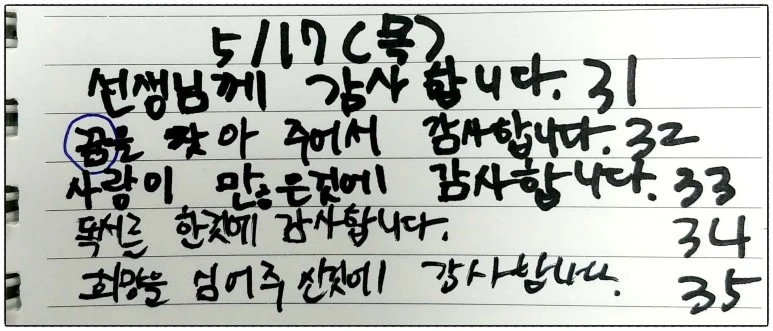 5/17(목)
선생님께 감사 합니다. 31
꿈을 찾아 주어서 감사합니다. 32
사람이 많은것에 감사합니다. 33
독서를 한것에 감사합니다. 34
희망을 심어주신것에 감사합니다. 35